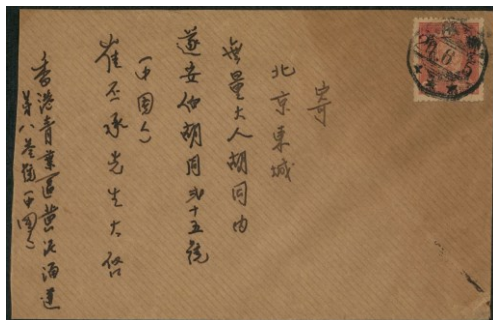 寄
北京東城
無量大人胡同内
遂安伯胡同弍十五號
(中国)
崔丕承先生大啓
香港青葉區黄泥涌道
第八叁號(中国)